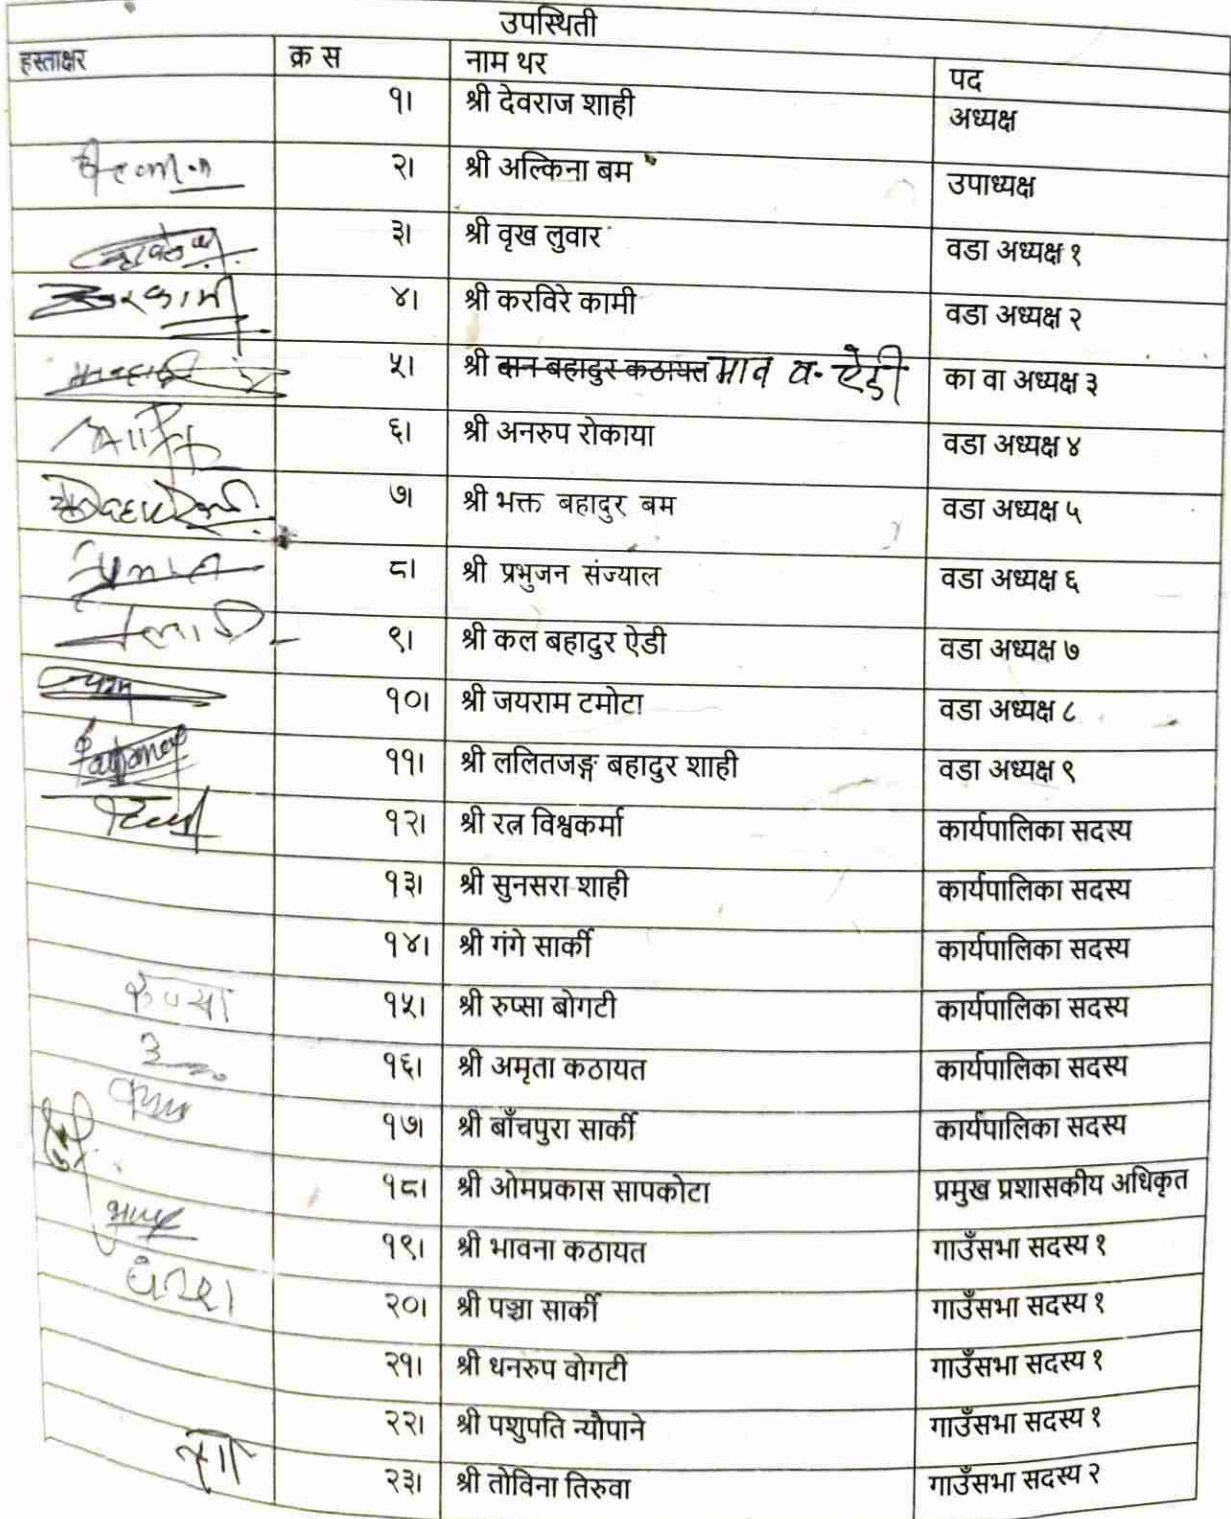 उपस्थिती
हस्ताक्षर क्र स नाम थर पद
१। श्री देवराज शाही अध्यक्ष
२। श्री अल्किना बम उपाध्यक्ष
३। श्री वृख लुवार वडा अध्यक्ष १
४। श्री करविरे कामी वडा अध्यक्ष २
५। श्री बान बहादुर कठायत मान ब. ऐडी का वा अध्यक्ष ३
६। श्री अनरुप रोकाया वडा अध्यक्ष ४
७। श्री भक्त बहादुर बम वडा अध्यक्ष ५
८। श्री प्रभुजन संज्याल वडा अध्यक्ष ६
९। श्री कल बहादुर ऐडी वडा अध्यक्ष ७
१०। श्री जयराम टमोटा वडा अध्यक्ष ८
११। श्री ललितजङ्ग बहादुर शाही वडा अध्यक्ष ९
१२। श्री रत्न विश्वकर्मा कार्यपालिका सदस्य
१३। श्री सुनसरा शाही कार्यपालिका सदस्य
१४। श्री गंगे सार्की कार्यपालिका सदस्य
१५। श्री रुप्सा बोगटी कार्यपालिका सदस्य
१६। श्री अमृता कठायत कार्यपालिका सदस्य
१७। श्री बाँचपुरा सार्की कार्यपालिका सदस्य
१८। श्री ओमप्रकास सापकोटा प्रमुख प्रशासकीय अधिकृत
१९। श्री भावना कठायत गाउँसभा सदस्य १
२०। श्री पञ्चा सार्की गाउँसभा सदस्य १
२१। श्री धनरुप वोगटी गाउँसभा सदस्य १
२२। श्री पशुपति न्यौपाने गाउँसभा सदस्य १
२३। श्री तोविना तिरुवा गाउँसभा सदस्य २